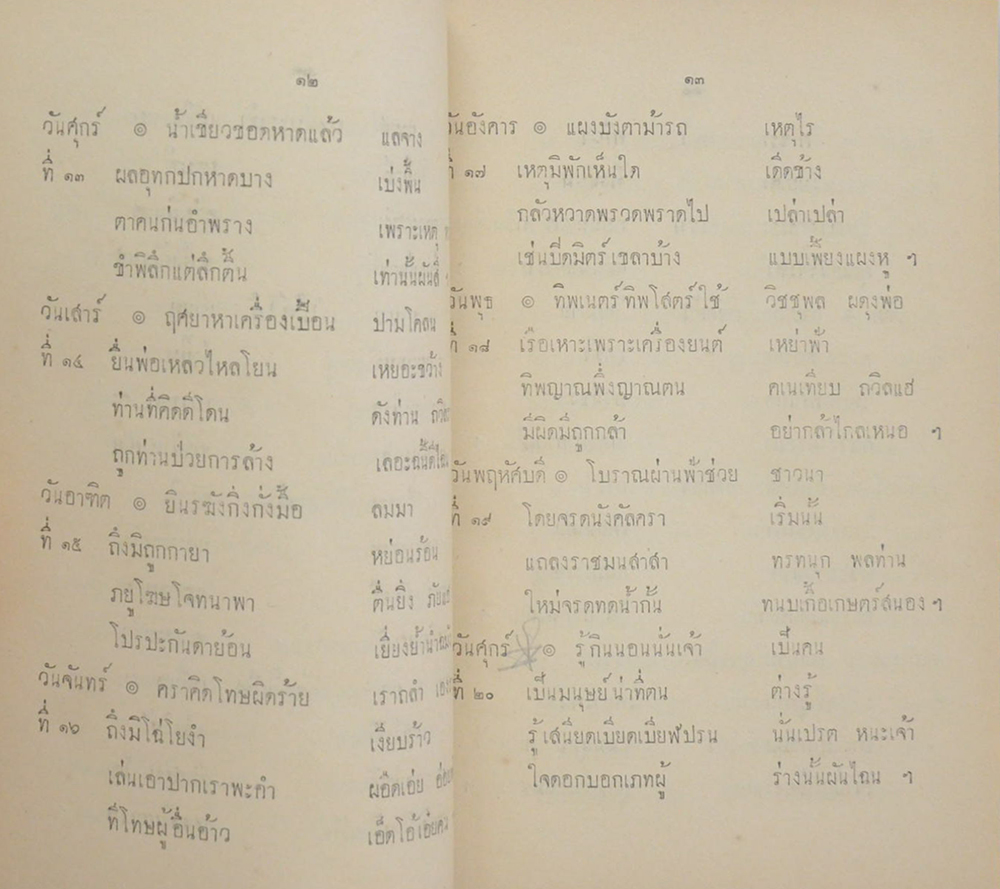 ๑๒
วันศุกร์ ๏ น้ำเชี่ยวซอดหาดแล้ว แลจาง
ที่ ๑๓ ผลอุทกปกหาดบาง เบ่งพื้น
ตาคนก่นอำพราง เพราะเหตุ
ชำพิลึกแต่ลึกตื้น เท่านั้นผันสี่
วันเสาร์ ๏ ฤศยาหาเครื่องเปื้อน ปามโคลน
ที่ ๑๔ ยื่นพ่อเหลวไหลโยน เหยอะขว้าง
ท่านที่คิดดีโดน ดังท่าน
ถูกท่านป่วยการล้าง
วันอาฑิต ๏ ยินรฆังกิ่งกั่งมื้อ ลมมา
ที่ ๑๕ ถึงมิถูกกายา หย่อนร้อน
ภยูโฆษโจทนาพา ตื่นยิ่ง
โปรปะกันดาย้อน
วันจันทร์ ๏ คราคิดโทษผิดร้าย เราถลำ
ที่ ๑๖ ถึงมิโฉ่โยงำ เงียบร้าว
เล่นเอาปากเราพะคำ ผอืดเอ่ย
ที่โทษผู้อื่นอ้าว
๑๓
วันอังคาร ๏ แผงบังตาม้ารถ เหตุไร
ที่ ๑๗ เหตุมิพักเห็นใด เด็ดข้าง
กลัวหวาดพรวดพราดไป เปล่าเปล่า
เช่นปิดมิตร์เขลาบ้าง แบบเพี้ยงแผงหู ฯ
วันพุธ ๏ ทิพเนตร์ทิพโสตร์ใช้ วิชชุพล ผดุงพ่อ
ที่ ๑๘ เรือเหาะเพราะเครื่องยนต์ เหย่าฟ้า
ทิพญาณพึ่งญาณตน คเนเทียบ ถวิลแฮ่
มีผิดมีถูกกล้า อย่ากล้าไกลเหนอ ฯ
วันพฤหัศบดี ๏ โบราณผ่านฟ้าช่วย ชาวนา
ที่ ๑๙ โดยจรดนังคัลครา เริ่มนั้น
แถลงราชมนสาสา ทรทนุก พลท่าน
ใหม่จรดทดน้ำกั้น ทนบเกื้อเกษตร์สนอง ฯ
วันศุกร์ ๏ รู้กินนอนนั่นเจ้า เป็นคน
ที่ ๒๐ เป็นมนุษย์น่าที่ตน ต่างรู้
รู้เสนียดเบียดเบียฬปรน นั่นเปรต หนะเจ้า
ใจดอกบอกเภทผู้ ร่างนั้นผันไฉน ฯ